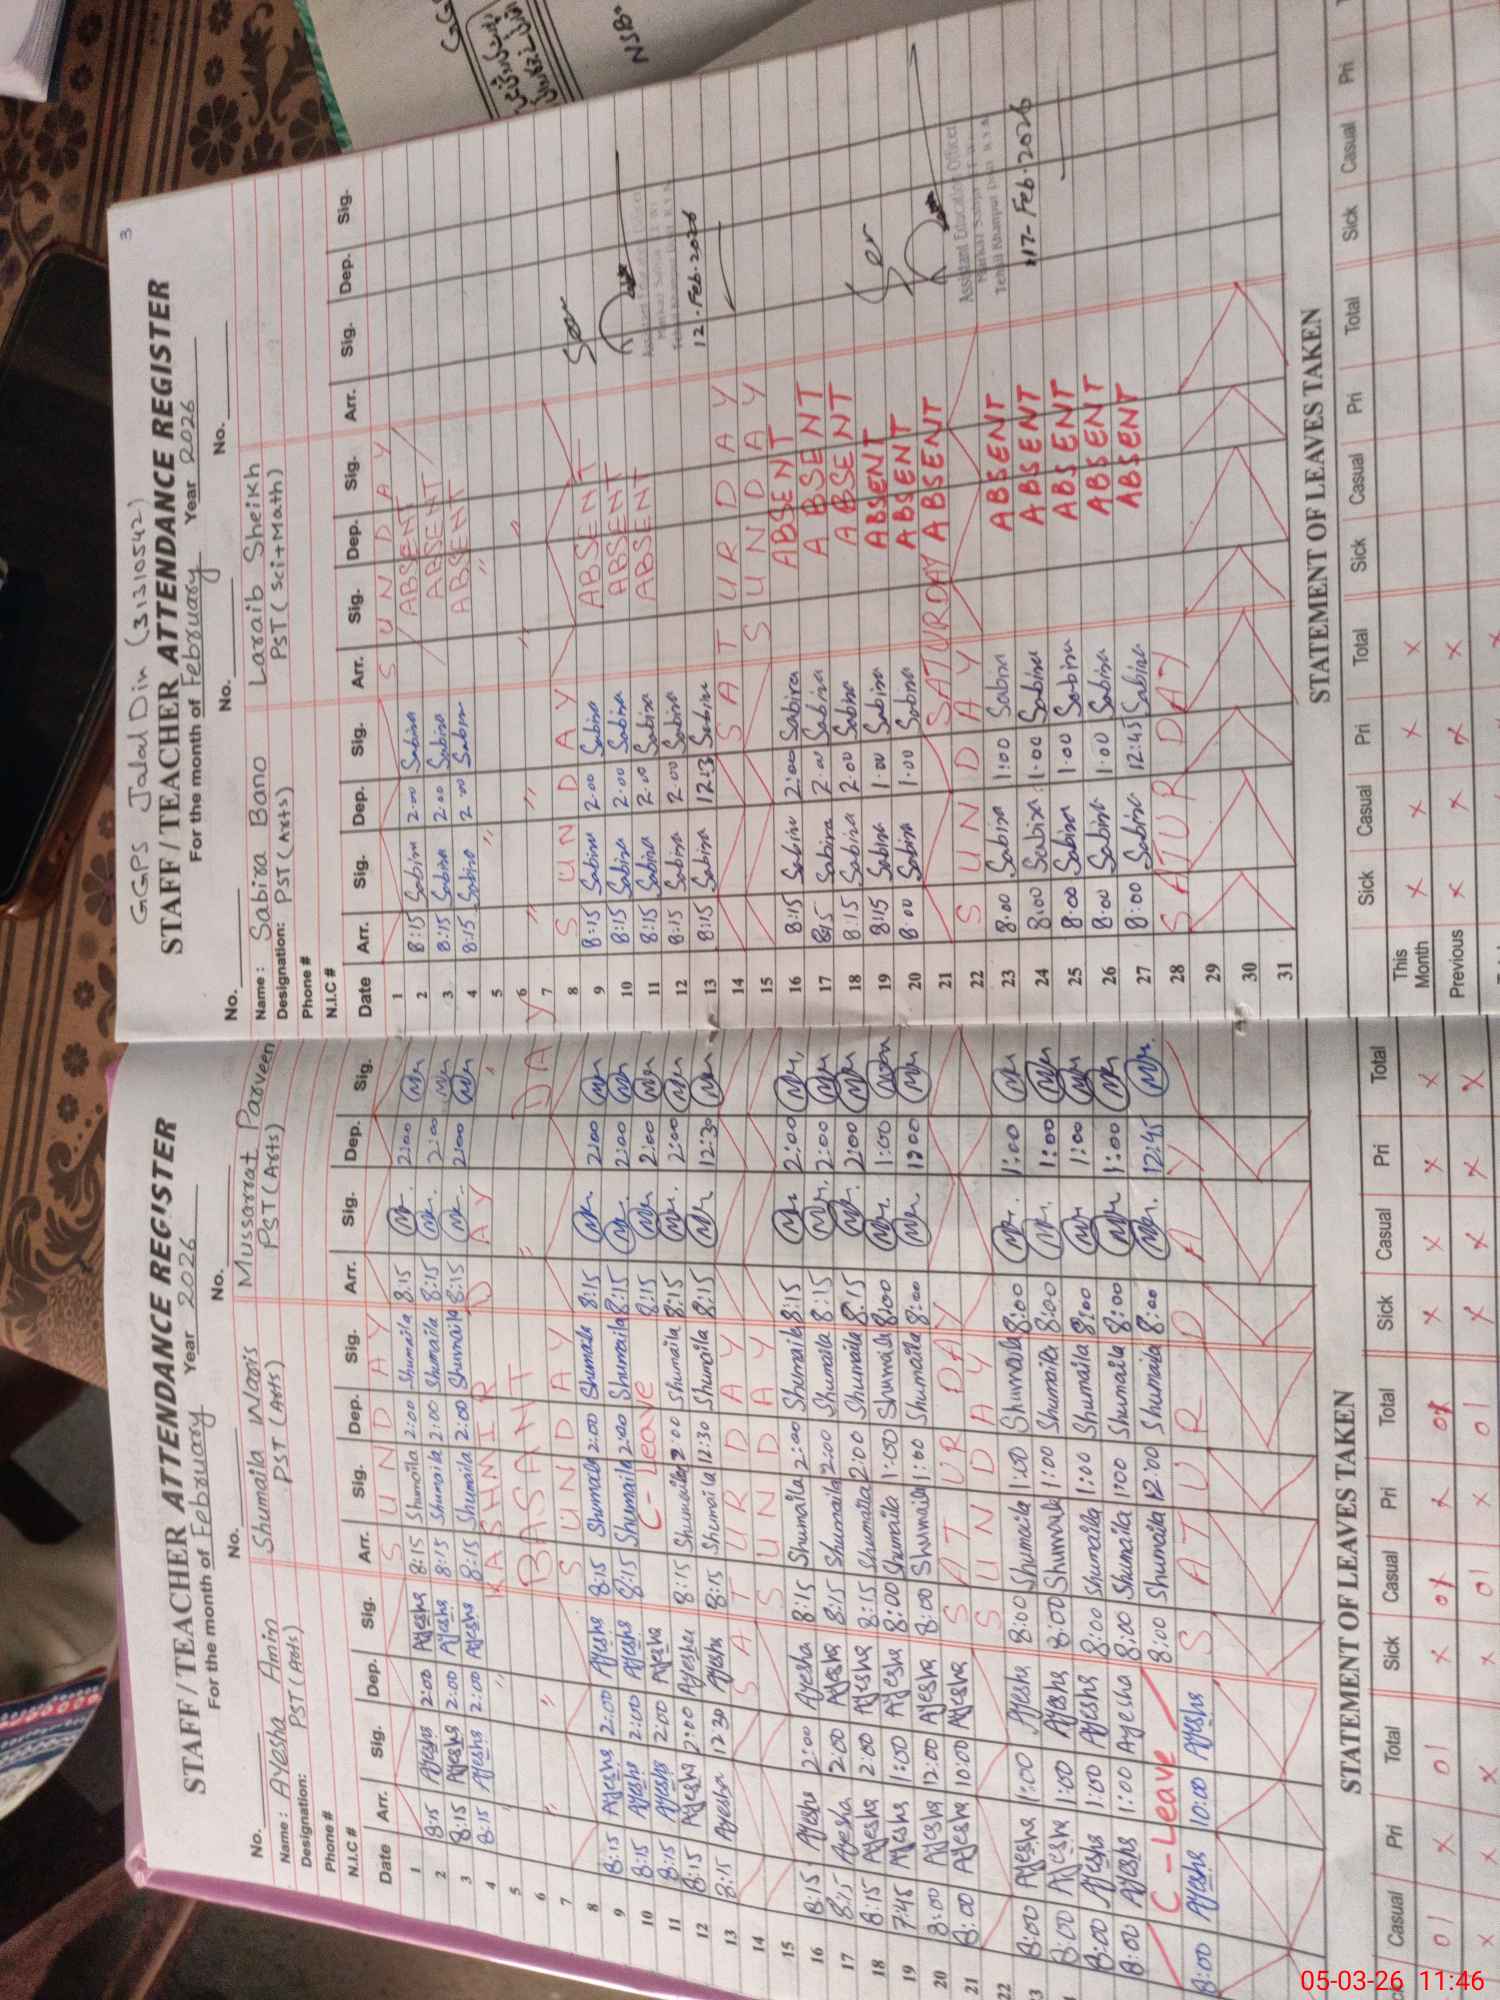 GGPS Jalal Din (31310542)
3
STAFF / TEACHER ATTENDANCE REGISTER
For the month of February Year 2026
No. No. No.
Name: Ayesha Amin Shumaila Waris Mussarrat Parveen
Designation: PST (Arts) PST (Arts) PST (Arts)
Phone #
N.I.C #
Date Arr. Sig. Dep. Sig. Arr. Sig. Dep. Sig. Arr. Sig. Dep. Sig.
1 SUNDAY
2 8:15 Ayesha 2:00 Ayesha 8:15 Shumaila 2:00 Shumaila 8:15 2:00
3 8:15 Ayesha 2:00 Ayesha 8:15 Shumaila 2:00 Shumaila 8:15 2:00
4 8:15 Ayesha 2:00 Ayesha 8:15 Shumaila 2:00 Shumaila 8:15 2:00
5 KASHMIR DAY
6 BASANT DAY
7
8 SUNDAY
9 8:15 Ayesha 2:00 Ayesha 8:15 Shumaila 2:00 Shumaila 8:15 2:00
10 8:15 Ayesha 2:00 Ayesha 8:15 Shumaila 2:00 Shumaila 8:15 2:00
11 8:15 Ayesha 2:00 Ayesha C-Leave 8:15 2:00
12 8:15 Ayesha 2:00 Ayesha 8:15 Shumaila 2:00 Shumaila 8:15 2:00
13 8:15 Ayesha 12:30 Ayesha 8:15 Shumaila 12:30 Shumaila 8:15 12:30
14 SATURDAY
15 SUNDAY
16 8:15 Ayesha 2:00 Ayesha 8:15 Shumaila 2:00 Shumaila 8:15 2:00
17 8:15 Ayesha 2:00 Ayesha 8:15 Shumaila 2:00 Shumaila 8:15 2:00
18 8:15 Ayesha 2:00 Ayesha 8:15 Shumaila 2:00 Shumaila 8:15 2:00
19 7:45 Ayesha 1:00 Ayesha 8:00 Shumaila 1:00 Shumaila 8:00 1:00
20 8:00 Ayesha 12:00 Ayesha 8:00 Shumaila 1:00 Shumaila 8:00
21 8:00 Ayesha 10:00 Ayesha SATURDAY
22 SUNDAY
8:00 Ayesha 1:00 Ayesha 8:00 Shumaila 1:00 Shumaila 8:00 1:00
8:00 Ayesha 1:00 Ayesha 8:00 Shumaila 1:00 Shumaila 8:00 1:00
8:00 Ayesha 1:00 Ayesha 8:00 Shumaila 1:00 Shumaila 8:00 1:00
8:00 Ayesha 1:00 Ayesha 8:00 Shumaila 1:00 Shumaila 8:00 1:00
C-Leave 8:00 Shumaila 12:00 Shumaila 8:00 12:45
8:00 Ayesha 10:00 Ayesha SATURDAY
STATEMENT OF LEAVES TAKEN
Casual Pri Total Sick Casual Pri Total Sick Casual Pri Total
01 x 01 x 01 x 01 x x x x
x x x x 01 x 01 x x x x
STAFF / TEACHER ATTENDANCE REGISTER
For the month of February Year 2026
No. No. No.
Name: Sabira Bano Laraib Sheikh
Designation: PST (Arts) PST (Sci+Math)
Phone #
N.I.C #
Date Arr. Sig. Dep. Sig. Arr. Sig. Dep. Sig. Arr. Sig. Dep. Sig.
1 SUNDAY
2 8:15 Sabira 2:00 Sabira ABSENT
3 8:15 Sabira 2:00 Sabira ABSENT
4 8:15 Sabira 2:00 Sabira ABSENT
5 " "
6 " " " "
7
8 SUNDAY
9 8:15 Sabira 2:00 Sabira ABSENT
10 8:15 Sabira 2:00 Sabira ABSENT
11 8:15 Sabira 2:00 Sabira ABSENT
12 8:15 Sabira 2:00 Sabira
13 8:15 Sabira 12:3 Sabira
12-Feb-2026
14 SATURDAY
15 SUNDAY
16 8:15 Sabira 2:00 Sabira ABSENT
17 8:15 Sabira 2:00 Sabira ABSENT
18 8:15 Sabira 2:00 Sabira ABSENT
19 8:15 Sabira 1:00 Sabira ABSENT
20 8:00 Sabira 1:00 Sabira ABSENT
21 SATURDAY ABSENT
22 SUNDAY
23 8:00 Sabira 1:00 Sabira ABSENT
24 8:00 Sabira 1:00 Sabira ABSENT
25 8:00 Sabira 1:00 Sabira ABSENT
26 8:00 Sabira 1:00 Sabira ABSENT
27 8:00 Sabira 12:45 Sabira ABSENT
Assistant Education Officer
17-Feb-2026
28 SATURDAY
29
30
31
STATEMENT OF LEAVES TAKEN
Sick Casual Pri Total Sick Casual Pri Total Sick Casual Pri
This Month x x x x
Previous x x x x
NSB
05-03-26 11:46